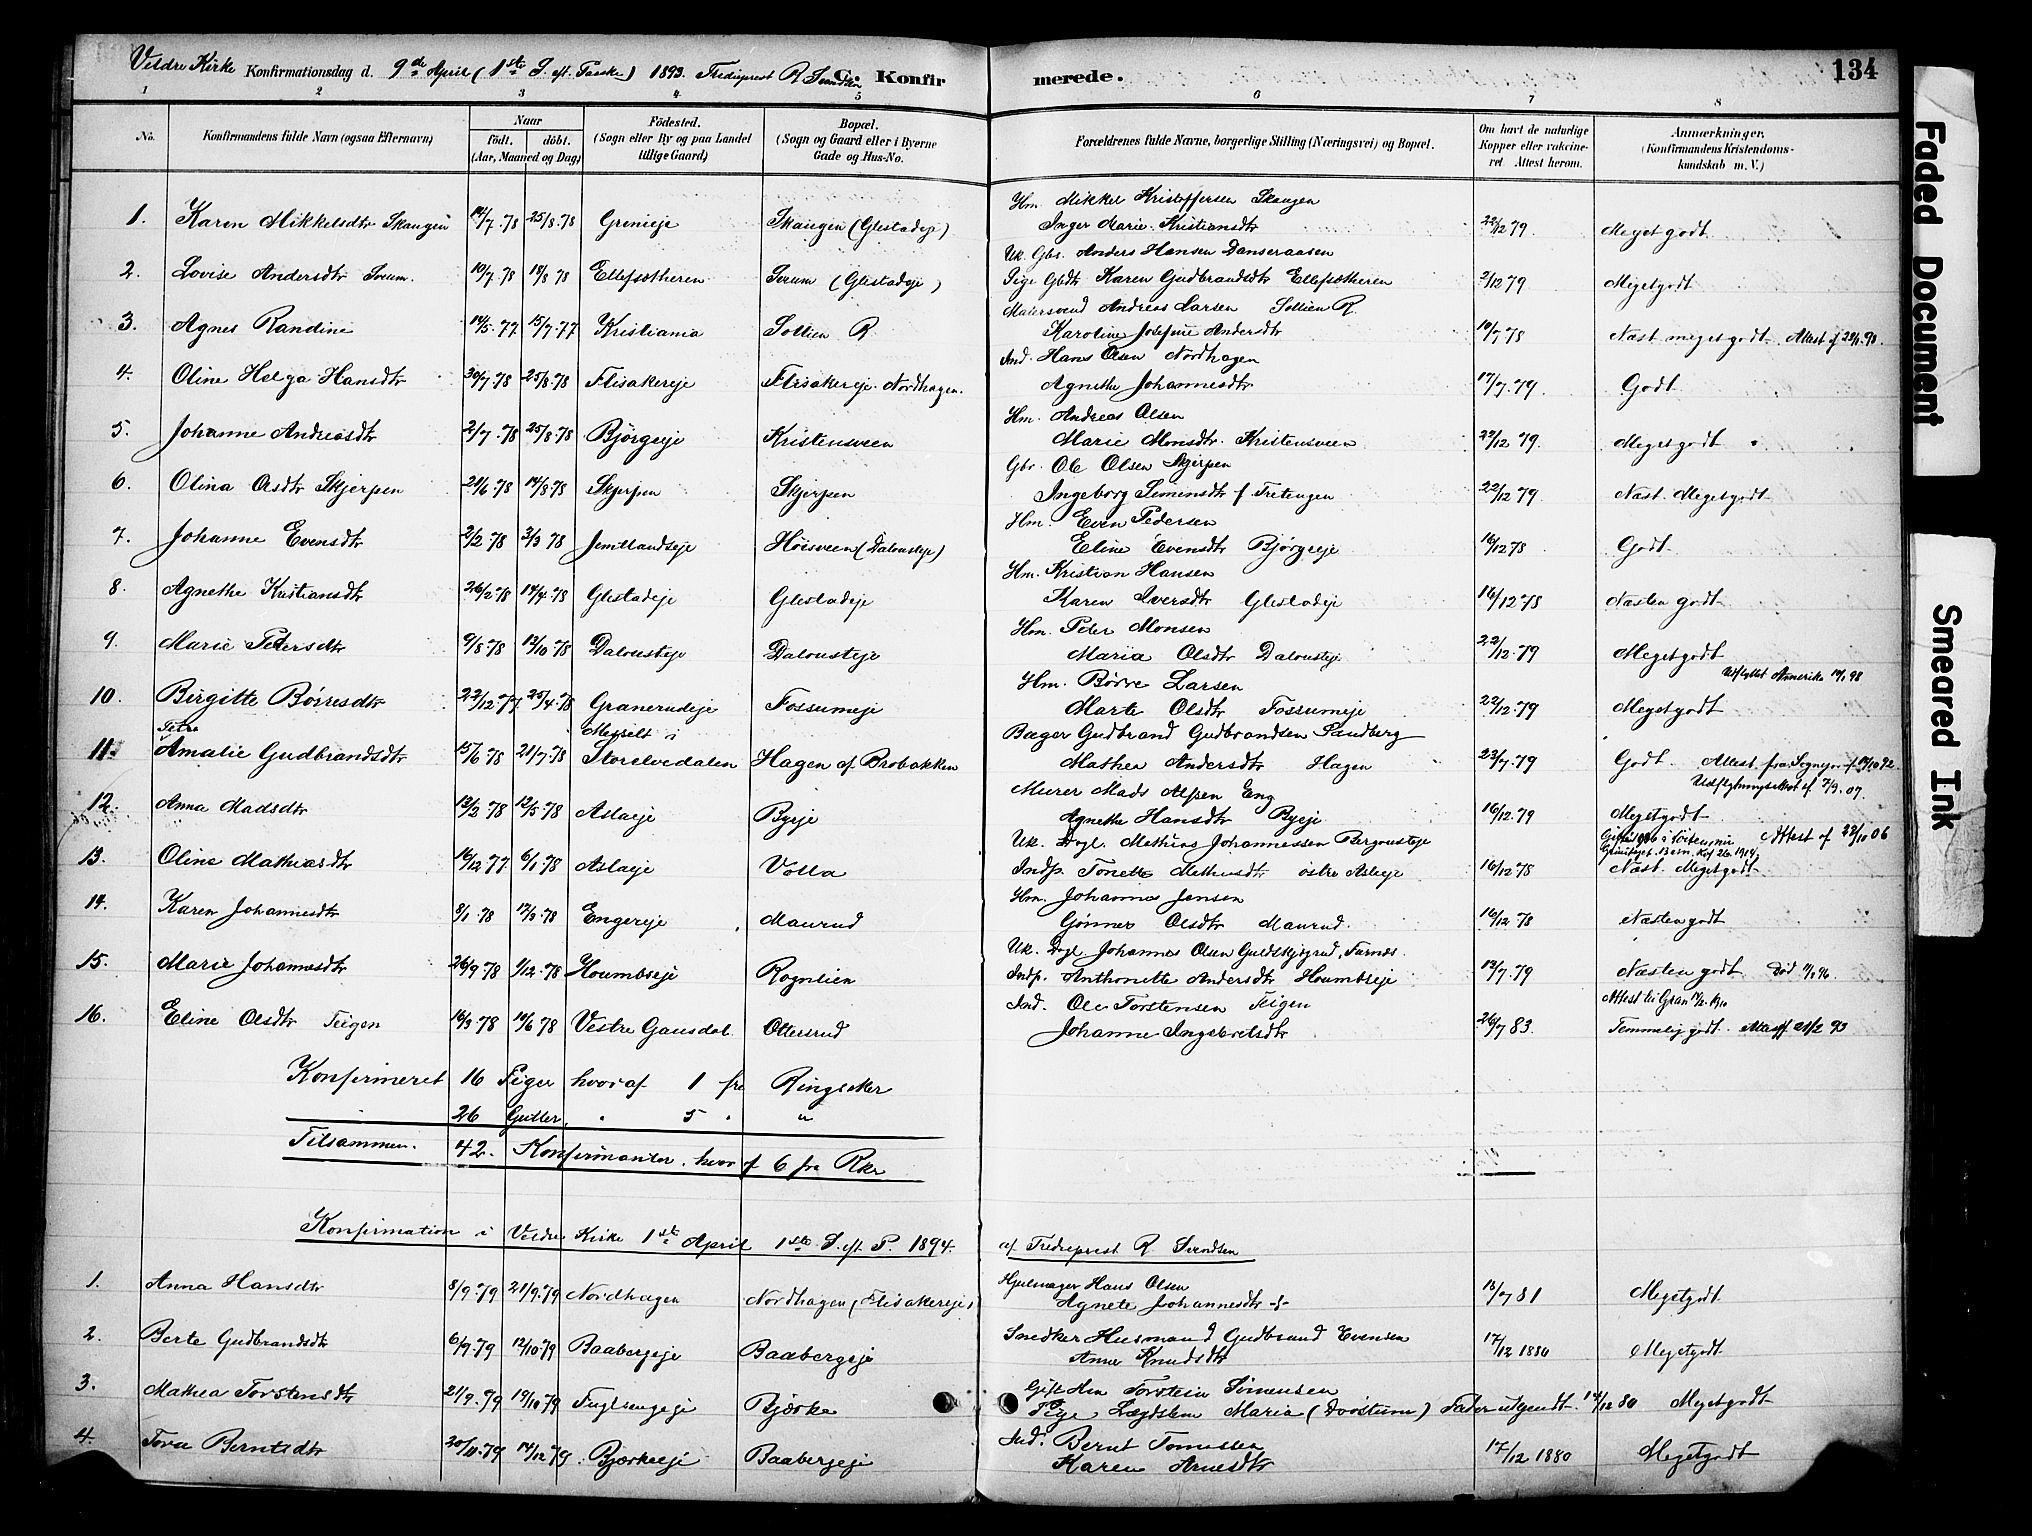 Veldre Kirke Konfirmationsdag d. 9de April (1ste S. eft. Paaske) 1893. Tredieprest R Svendsen C. Konfir merede. 134
1 2 3 4 5 6 7 8
No. Konfirmandens fulde Navn (ogsaa Efternavn) Naar födt. döbt. (Aar, Maaned og Dag) Födested. (Sogn eller By og paa Landet tillige Gaard) Bopæl. (Sogn og Gaard eller i Byerne Gade og Hus-No. Forældrenes fulde Navne, borgerlige Stilling (Næringsvei) og Bopæl. Om havt de naturlige Kopper eller vaccineret Attest herom. Anmærkninger. (Konfirmandens Kristendomskundskab m. V.)
Hm. Mikkel Kristoffersen Skaugen
1. Karen Mikkelsdtr Skaugen 14/7.78 25/8.78 Grimeje Skaugen (Glestadeje) Inger Marie Kristiansdtr 22/12 79 Meget godt
Uk. Gbs. Anders Hansen Danseraasen
2. Lovise Andersdtr Sveum. 10/7.78 18/8 78 Ellefsætheren Sveum (Glestadeje) Pige Gbdtr Karen Gudbrandsdtr Ellefsætheren 2/12 79 Meget godt
Malersvend Andreas Larsen Sollien R.
3. Agnes Randine 14/5.77 15/7.77 Kristiania Sollien R Karoline Josefine Andersdtr 19/7 78 Næst meget godt. Attest
Ind. Hans Olsen Nordhagen
4. Oline Helga Hansdtr 30/7.78 25/8.78 Flisakereje Flisakereje Nordhagen. Agnethe Johannesdtr 17/7.79 Godt
Hm. Andreas Olsen
5. Johanne Andreasdtr 2/7.78 25/8.78 Björgeje Kristensveen Marie Monsdtr. Kristensveen 22/12 79. Meget godt
Gbr. Ole Olsen Skjerpen
6. Olina Olsdtr Skjerpen 21/6.78 14/8.78 Skjerpen Skjerpen Ingeborg Simensdtr f. Tretengen 22/12 79 Næst. Meget godt
Hm. Even Pedersen
7. Johanne Evensdtr 2/2 78 3/3 78 Jemtlandseje Höisveen (Dalousteje) Eline Evensdtr Björgeje 16/12 78 Godt
Hm. Kristian Hansen
8. Agnethe Kristiansdtr 26/2 78 14/4.78 Glestadeje Glestadeje Karen Iversdtr Glestadeje 16/12 78 Næsten godt
Hm. Peter Monsen
9. Marie Petersdtr 9/8.78 13/10.78 Dalousteje Dalousteje Maria Olsdtr Dalousteje 22/12.79 Meget godt
Hm. Börre Larsen Udflyttet Amerika 98
10. Birgitte Börresdtr 22/12.77 25/4.78 Granerudeje Fossumeje Marte Olsdtr Fossumeje 22/12.79 Meget godt
Petra Megselt i Bager Gudbrand Gudbrandsen Sandberg
11. Amalie Gudbrandsdtr 15/6 78 21/7.78 Storelvedalen Hagen af Brobakken Mathea Andersdtr Hagen 23/7.79 Godt Attest fra Sognepr. f. 14/10 92
Murer Mads Alpen Eng Udflytningsattest af 7/3.07.
12. Anna Madsdtr 12/2 78 12/5.78 Aslaeje Byeje Agnethe Hansdtr Byeje 16/12.79 Meget godt
Uk. Dagl. Mathias Johannessen Bergousteje Attest af 22/10 06
13. Oline Mathiasdtr 16/12.77 6/1.78 Aslaeje Volla Indp. Tonette Mathiasdtr östre Asleje 16/12 78 Næst. Meget godt
Hm. Johannes Jensen
14. Karen Johannesdtr 3/1.78 17/3.78 Engereje Maurud Gönner Olsdtr Maurud. 16/12 78 Næsten godt
Uk. Dagl. Johannes Olsen Furnes.
15. Marie Johannesdtr 26/9 78 1/12.78 Houmbseje Rognlien Indp. Anthonette Andersdtr Houmbseje 13/7.79 Næsten godt Död 96
Ind. Ole Torstensen Teigen Attest til Gran
16. Eline Olsdtr Teigen 16/3.78 10/6 78 Vestre Gausdal Ottesrud Johanne Ingebretsdtr 26/7 83. Temmelig godt. Attest 21/2 93
Konfirmeret 16 Piger hvoraf 1 fra Ringsaker
26 Gutter. " 5 " "
Tilsammen. 42. Konfirmanter. hvoraf 6 fra Rkr
Konfirmation i Veldre Kirke 1ste April 1ste S. eft. P. 1894. af Tredieprest R Svendsen
Hjulmager Hans Olsen
1. Anna Hansdtr 8/9.79 21/9.79 Nordhagen Nordhagen (Flisakereje) Agnete Johannesdtr 13/7 81 Meget godt
Snedker Husmand Gudbrand Evensen
2. Berte Gudbrandsdtr 6/9.79 12/10.79 Baabergeje Baabergeje Anne Knudsdtr 17/12 1880 Meget godt
Gift Hm Torstein Simensen
3. Mathea Torstensdtr 21/9.79 19/10.79 Fuglsengeje Bjørke Pige Lægdslem Maria (Dvöstum) Fader utgendt. 17/12 80 Meget godt
Ind. Bernt Tomessen
4. Tova Berntsdtr 20/10.79 14/12 79 Bjørkeeje Baabergeje Karen Arnesdtr 17/12 1880 Meget godt
Faded Document
Smeared Ink